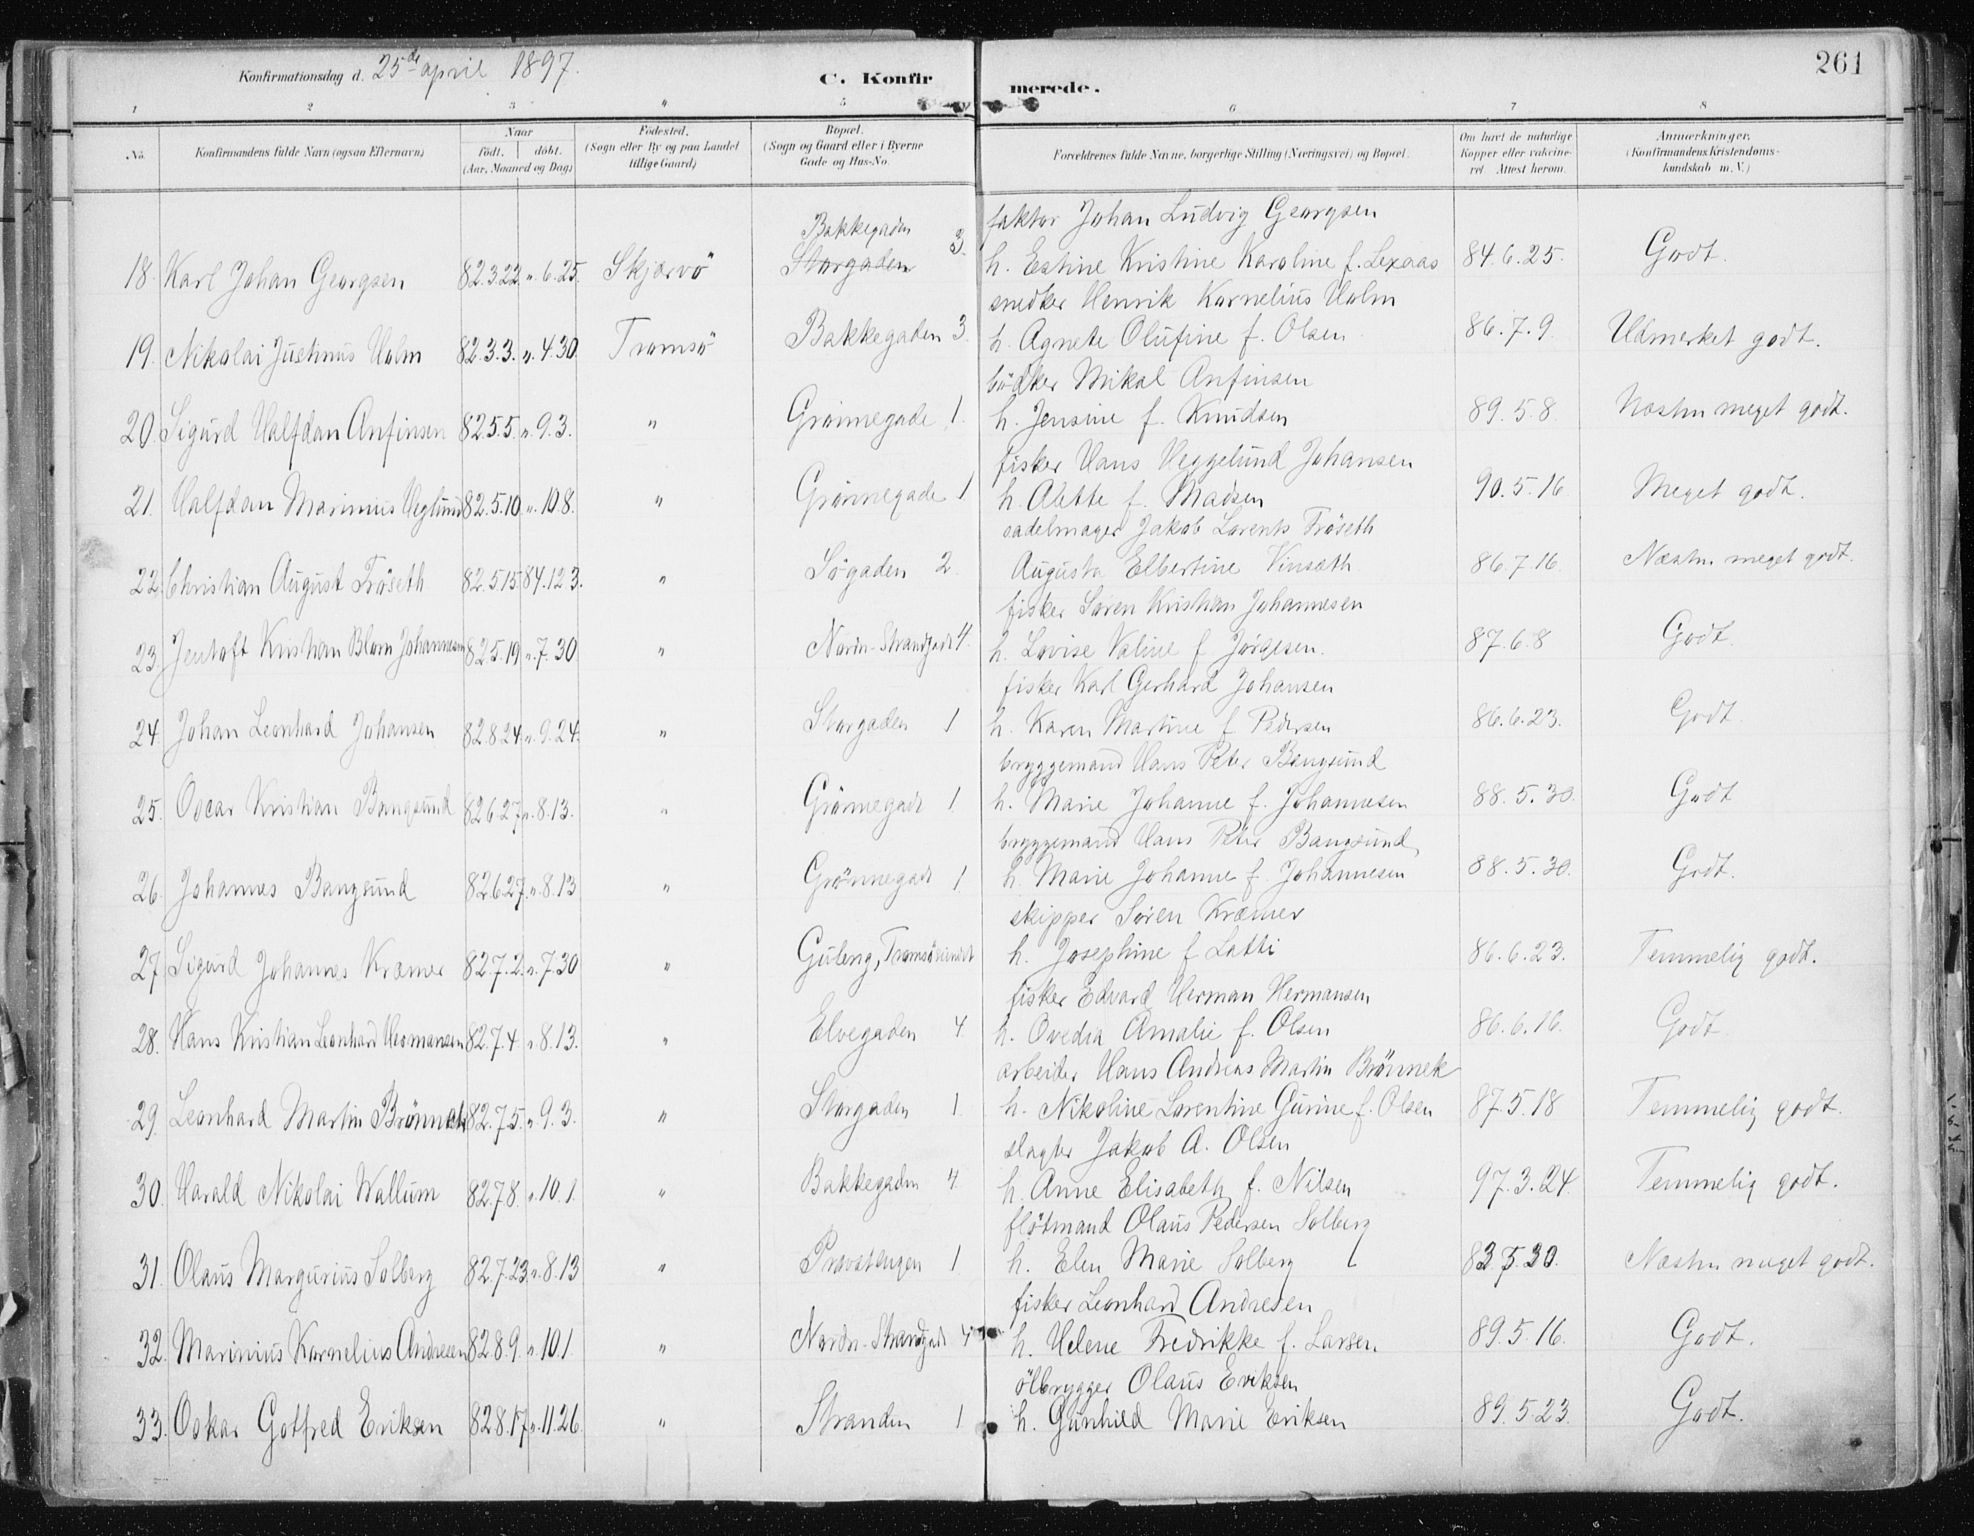 261
Konfirmationsdag d. 25de april 1897.
C. Konfirmerede.
1 2 3 " 5 6 7 8
No. Konfirmandens fulde Navn (ogsaa Efternavn) Naar født. døbt. (Aar, Maaned og Dag) Fødested. (Sogn eller By og paa Landet tillige Gaard) Bopæl. (Sogn og Gaard eller i Byerne Gade og Hus-No. Forældrenes fulde Navne, borgerlige Stilling (Næringsvei) og Bopæl. Om havt de naturlige Kopper eller vakcineret. Attest herom. Anmærkninger. (Konfirmandens Kristendomskundskab m. V.)
Bakkegaden faktor Johan Ludvig Georgsen
18. Karl Johan Georgsen 82.3.22 ". 6.25. Skjærvö Storgaden 3. h. Estine Kristine Karoline f. Lexaas 84.6.25. Godt.
snedker Henrik Kornelius Holm
19. Nikolai Justinus Holm 82.3.3. ". 4.30. Tromsö Bakkegaden 3. h. Agnete Olufine f. Olsen 86.7.9. Udmerket godt.
bödker Mikal Anfinsen
20. Sigurd Halfdan Anfinsen 82.5.5. ". 9.3. " Grönnegade 1. h. Jensine f. Knudsen 89.5.8. Næsten meget godt.
fisker Hans Heggelund Johansen
21. Halfdan Marinius Heglund 82.5.10. ". 10.8. " Grönnegade 1 h. Alette f. Madsen 90.5.16 Meget godt.
sadelmager Jakob Lorents Fröseth
22. Christian August Fröseth 82.5.15 84.12.3. " Søgaden 2. Augusta Elbertine Vinsæth 86.7.16. Næsten meget godt.
fisker Søren Kristian Johannesen
23. Jentoft Kristian Blom Johannesen 82.5.19 ". 7.30 " Nordr. Strandgade 4. h. Lovise Valine f. Jørgesen. 87.6.8 Godt.
fisker Karl Gerhard Johansen
24. Johan Leonhard Johansen 82.8.24. ". 9.24. " Storgaden 1 h. Karen Martine f. Pedersen 86.6.23. Godt
bryggemand Hans Peter Bangsund
25. Oscar Kristian Bangsund 82.6.27 ". 8.13. " Grönnegade 1 h. Marie Johanne f. Johannesen 88.5.30. Godt
bryggemand Hans Peter Bangsund
26. Johannes Bangsund 82.6.27. ". 8.13 " Grönnegade 1 h. Marie Johanne f. Johannesen 88.5.30. Godt.
skipper Søren Kræmer
27. Sigurd Johannes Kræmer 82.7.2. ". 7.30 " Guleng, Tromsösundet h. Josephine f. Latti 86.6.23. Temmelig godt.
fisker Edvard Herman Hermansen
28. Hans Kristian Leonhard Hermansen 82.7.4 ". 8.13. " Elvegaden 4 h. Ovedia Amalie f. Olsen 86.6.16. Godt
arbeider Hans Andreas Martin Brönnek
29. Leonhard Martin Brönnek 82.7.5. ". 9.3. " Storgaden 1. h. Nikoline Lorentine Gurine f. Olsen 87.5.18 Temmelig godt.
slagter Jakob A. Olsen
30. Harald Nikolai Wallum 82.7.8. ". 10.1. " Bakkegaden 4. h. Anne Elisabeth f. Nilsen 97.3.24. Temmelig godt.
flötmand Olaus Pedersen Solberg
31. Olaus Margurius Solberg 82.7.23. ". 8.13 " Provstengen 1 h. Elen Marie Solberg 83.5.30. Næsten meget godt.
fisker Leonhard Andresen
32. Marinius Kornelius Andresen 82.8.9. ". 10.1. " Nordr. Strandgade 4 h. Helene Fredrikke f. Larsen. 89.5.16. Godt.
ölbrygger Olaus Eriksen
33. Oskar Gotfred Eriksen 82.8.17. ". 11.26. " Stranden 1 h. Gunhild Marie Eriksen 89.5.23. Godt.